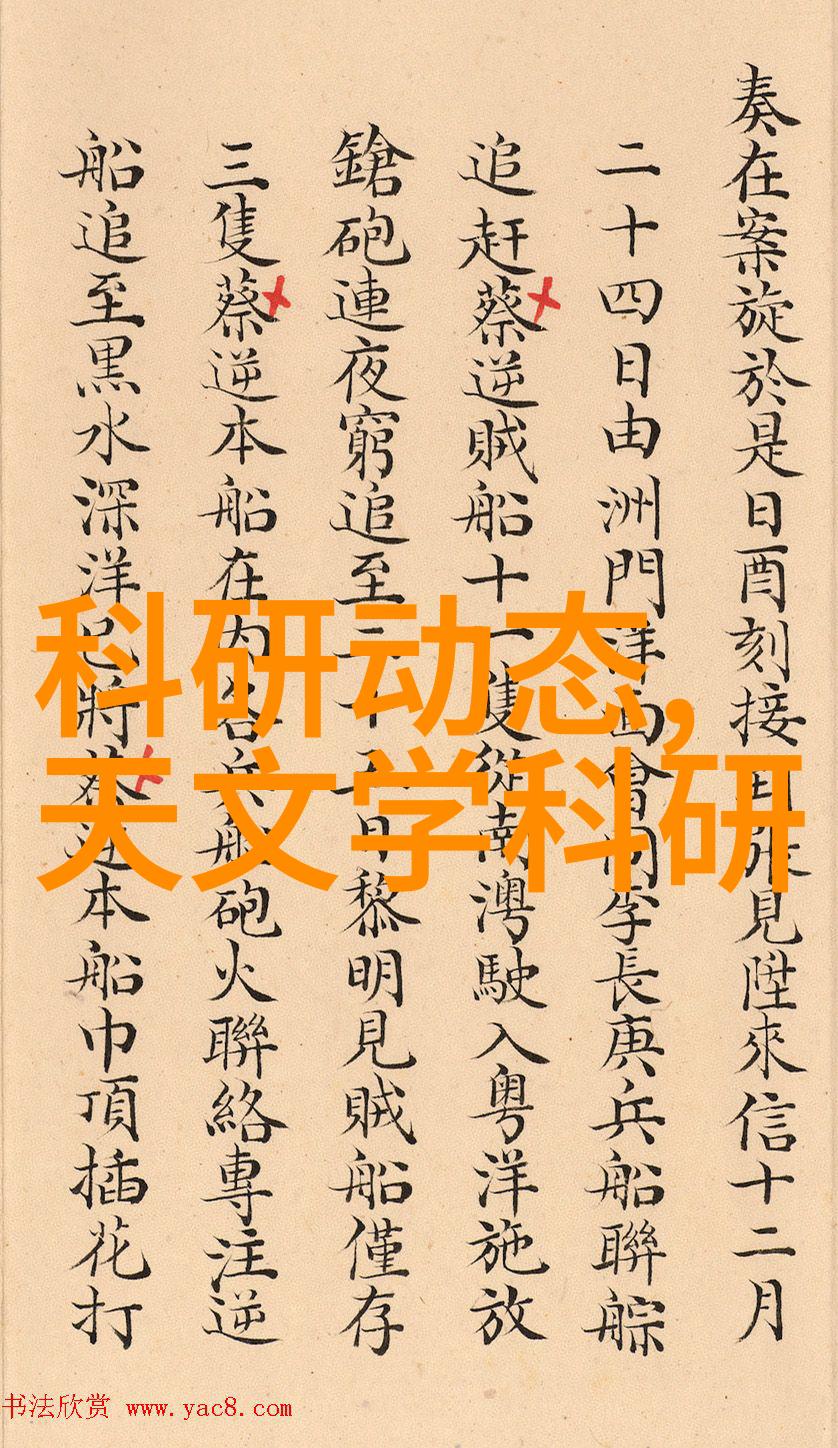 奏在案旋於是日酉刻接
見陞來信十二月
二十四日由洲門洋面會同李長庚兵船聯䑸
追赶蔡逆賊船十一隻從南澳駛入粤洋施放
鎗砲連夜窮追至二十五日黎明見賊船僅存
三隻蔡逆本船在内各兵船砲火聯絡專注逆
船追至黒水深洋已將蔡逆本船巾頂插花打
科研动态,
天文学科研
书法欣赏 www.yac8.com